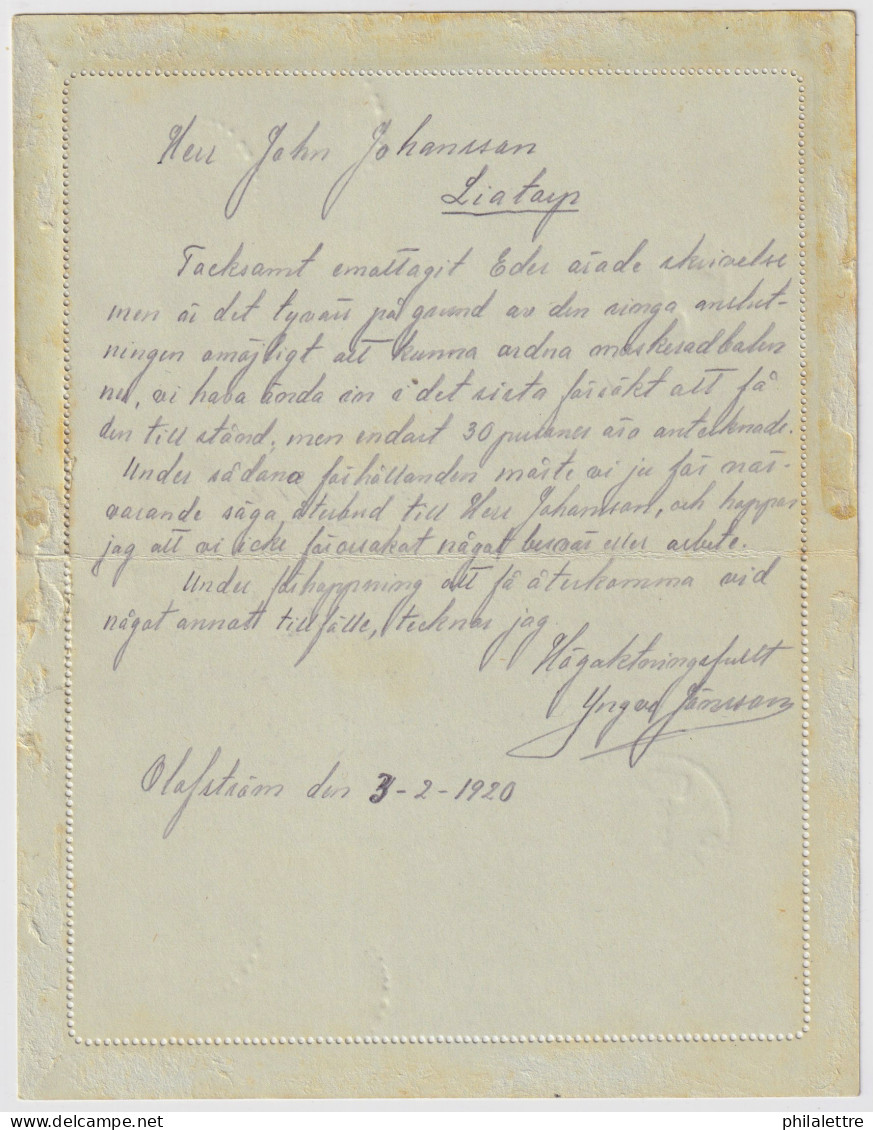 Herr John Johansson
Liatorp
Tacksamt emottagit Eder ärade skrivelse
men är det tyvärr på grund av den ringa anslut-
ningen omöjligt att kunna ordna maskeradbalen
nu, vi hava ända in i det sista försökt att få
den till stånd, men endast 30 personer äro antecknade.
Under sådana förhållanden måste vi ju för när-
varande säga återbud till Herr Johansson, och hoppas
jag att vi icke förorsakat något besvär eller arbete.
Under förhoppning att få återkomma vid
något annatt tillfälle, tecknar jag
Högaktningsfullt
Yngve Jönsson
Olofström den 3-2-1920
DELCAMPE.NET
philalettre